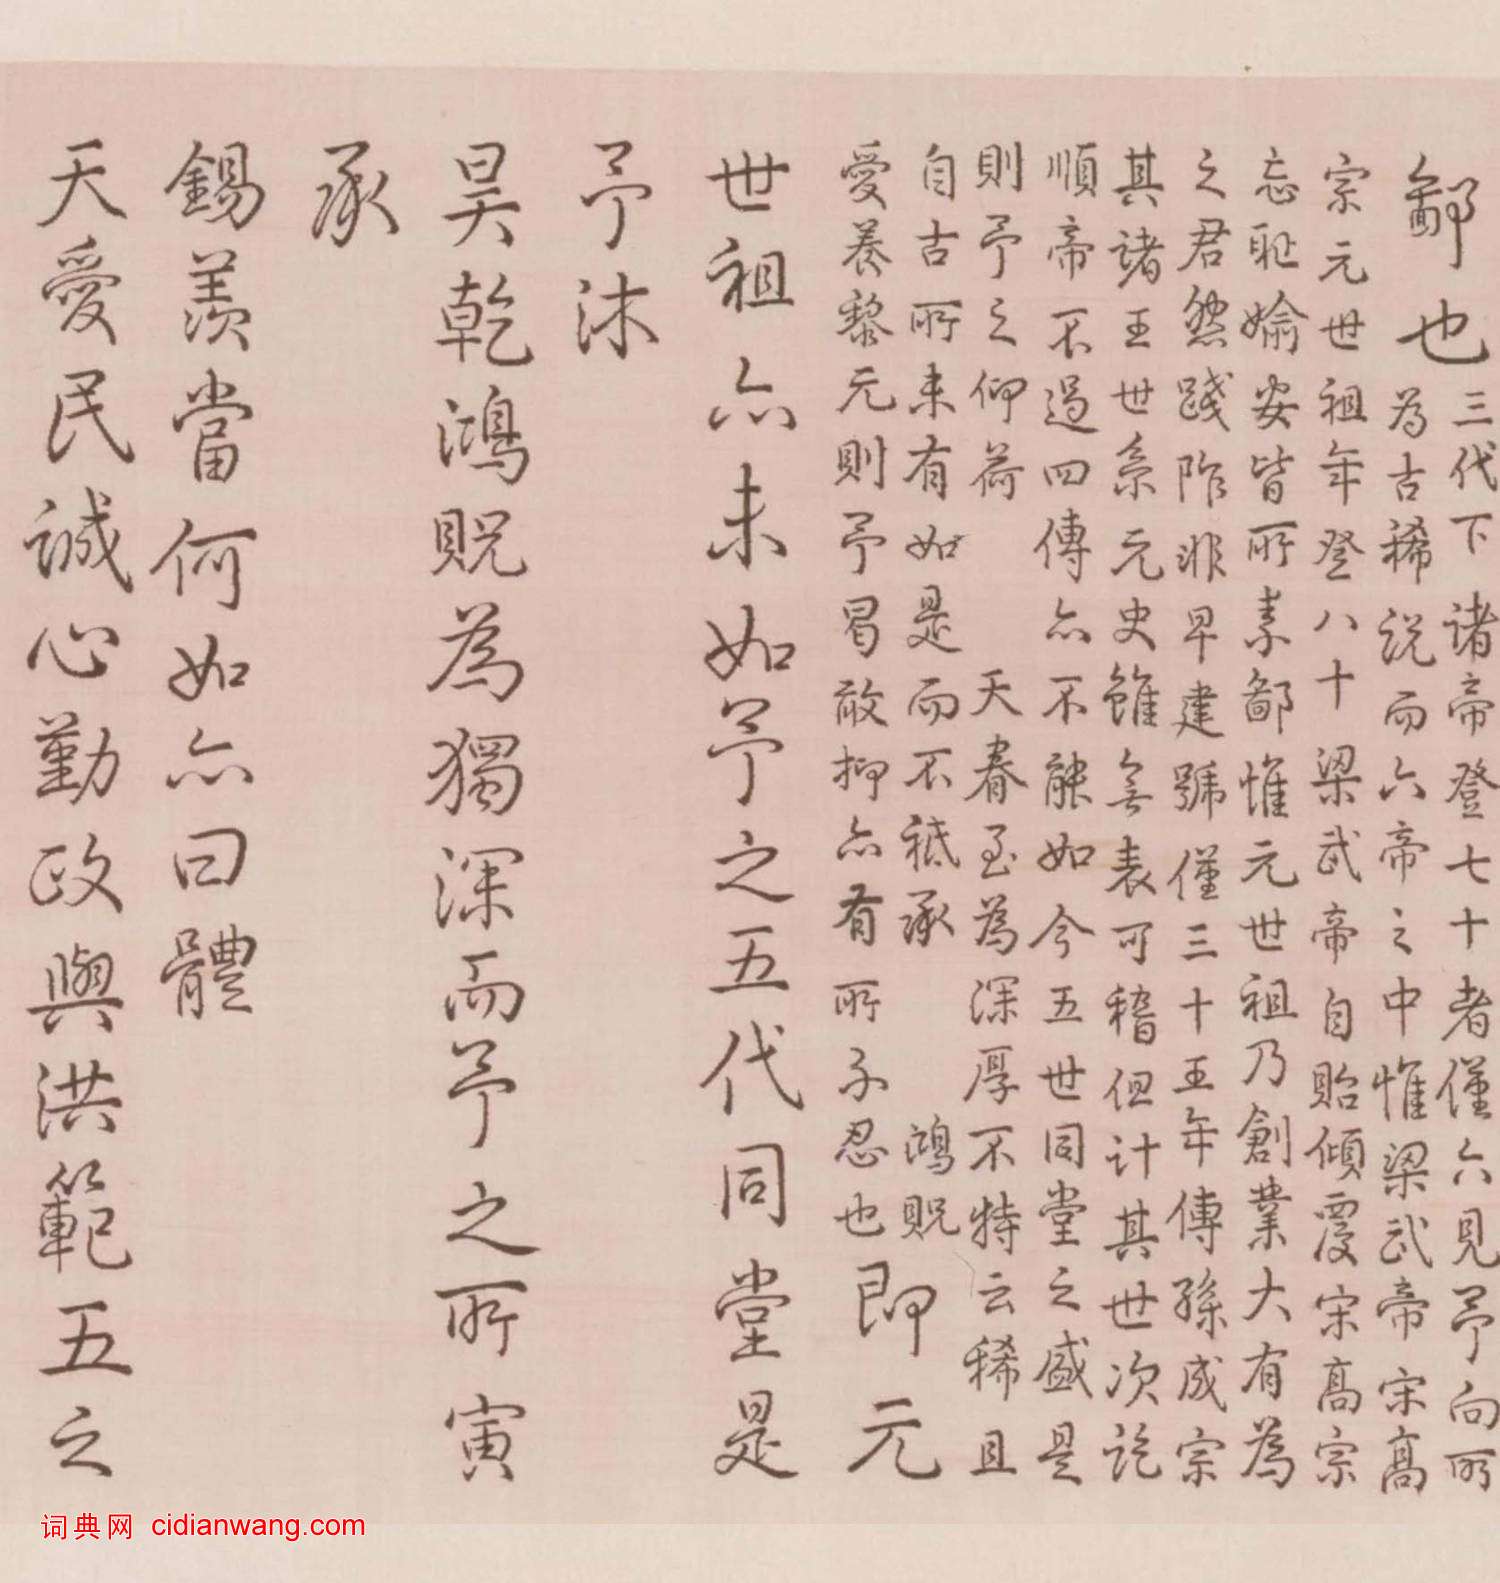 鄙也
三代下諸帝登七十者僅六見予向所
為古稀說而六帝之中惟梁武帝宋高
宗元世祖年登八十梁武帝自貽傾覆宋高宗
忘恥媮安皆所素鄙惟元世祖乃創業大有為
之君然踐阼非早建號僅三十五年傳孫成宗
其諸王世系元史雖無表可稽但計其世次訖
順帝不過四傳亦不能如今五世同堂之盛是
則予之仰荷 天眷至為深厚不特云稀且
自古所未有如是而不祗承 鴻貺
愛養黎元則予曷敢抑亦有所不忍也
即元
世祖亦未如予之五代同堂是
予沐
昊乾鴻貺為獨深而予之所寅
承
錫羨當何如亦曰體
天愛民誠心勤政與洪範五之
词典网 cidianwang.com